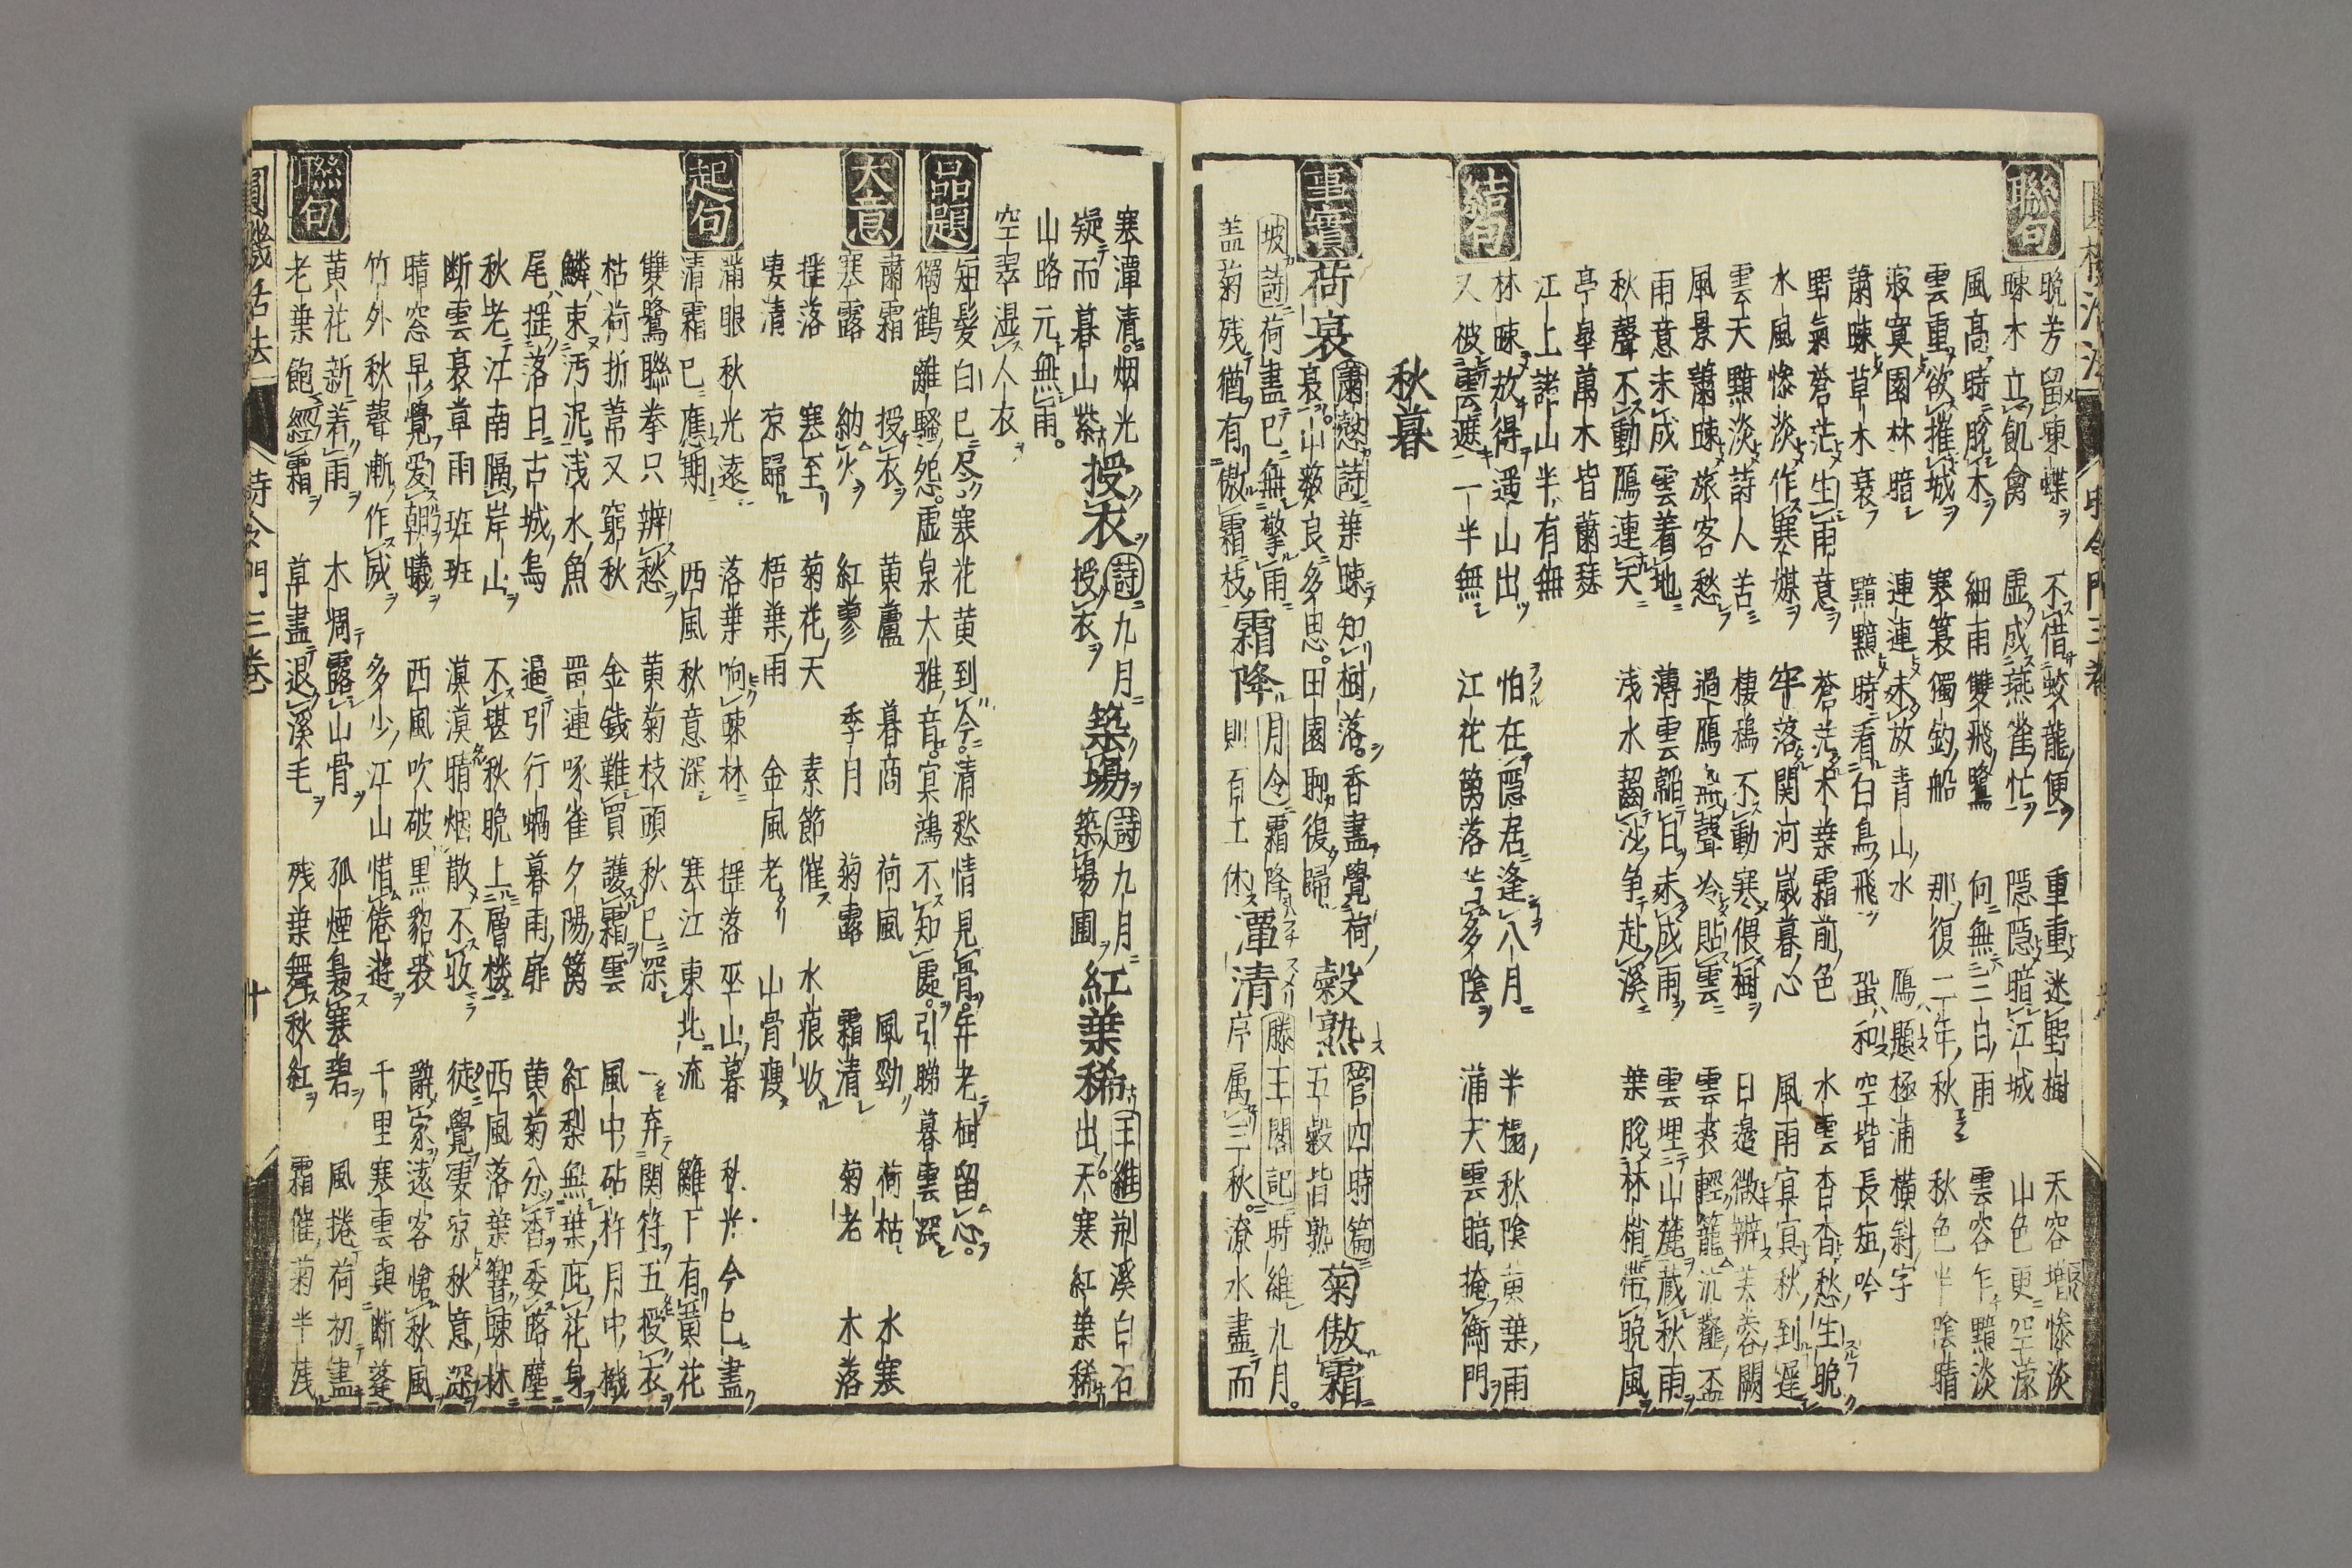 聯句
晚芳留凍蝶 不借蛟龍便 重重迷野樹 天容增慘淡
踈木立飢禽 虚成燕雀忙 隠隠暗江城 山色更空濛
風高時脫木 細雨雙飛鷺 何無三二白 雨雲容乍黯淡
雲重欲摧城 寒簑獨釣船 那復一年秋 秋色半陰晴
寂寞園林暗 連連未放青山水 鴈懸極浦橫斜字
蕭踈草木衰 黯黯時看白鳥飛 蛩和空堦長短吟
野氣蒼茫生雨意 蒼茫木葉霜前色 水雲杳杳愁生晚
水風慘淡作寒媒 牢落関河歳暮心 風雨冥冥秋到遲
雲天黯淡詩人苦 棲鴉不動寒偎樹 日邉微辨芙蓉闕
風景蕭踈旅客愁 過鴈無聲冷貼雲 雲裘輕籠沆瀣盃
雨意未成雲着地 薄雲韜日未成雨 雲埋山麓蔵秋雨
秋聲不動鴈連天 浅水齧沙争赴溪 葉脫林梢帶晚風
亭皐萬木皆蕭瑟
江上諸山半有無
結句
林踈放得遥山出 怕在隠居逢八月 半榻秋陰黄葉雨
又被雲遮一半無 江花籬落苦多陰 蒲天雲暗掩衡門
秋暮
事實
荷衰 蕭愨詩葉踈知樹落香盡覺荷衰 穀熟 管四時篇五穀皆熟 菊傲霜
坡詩荷盡已無擎雨盖菊残猶有傲霜枝 霜降 月令霜降則百工休 潭清 滕王閣記時維九月序属三秋潦水盡而
寒潭清烟光疑而暮山紫 授衣 詩九月授衣 築場 詩九月築場圃 紅葉稀 王維荆溪白石出天寒紅葉稀
山路元無雨
空翠湿人衣
品題
短髮白已尽寒花黄到今清愁情見骨年老樹留心
獨鶴離騷怨虚泉大雅音冥鴻不知處引睇暮雲深
大意
肅霜 授衣 黄蘆 暮商 荷風 風勁 荷枯 水寒
寒露 納火 紅蓼 季月 菊露 霜清 菊老 木落
揺落 寒至 菊花天 素節催 水痕收
凄清 凉歸 梧葉雨 金風老 山骨瘦
起句
滿眼秋光遠 落葉响踈林 揺落巫山暮 秋光今已盡
清霜已應期 西風秋意深 寒江東北流 籬下有黄花
雙鷺聯拳只辦愁 黄菊枝頭秋已深 一弃関符五授衣
枯荷折葦又窮秋 金錢難買護霜雲 風中砧杵月中機
鱗束汚泥浅水魚 罾連啄雀夕陽籬 紅梨無葉庇花身
尾揺落日古城烏 逼引行蝸暮雨扉 黄菊分香委路塵
秋老江南隔岸山 不堪秋晚上層楼 西風落葉響踈林
断雲衰草雨班班 漠漠晴烟散不收 徒覺凄凉秋意深
晴窓早覺愛朝曦 西風吹破黒貂裘 辭家遠客愴秋風
竹外秋聲漸作威 多少江山惜倦遊 千里寒雲與断蓬
聯句
黄花新著雨 木凋露山骨 孤煙裊寒碧 風捲荷初盡
老葉飽經霜 草盡退溪毛 残葉舞秋紅 霜催菊半残
圓機活法 時令門三巻 十